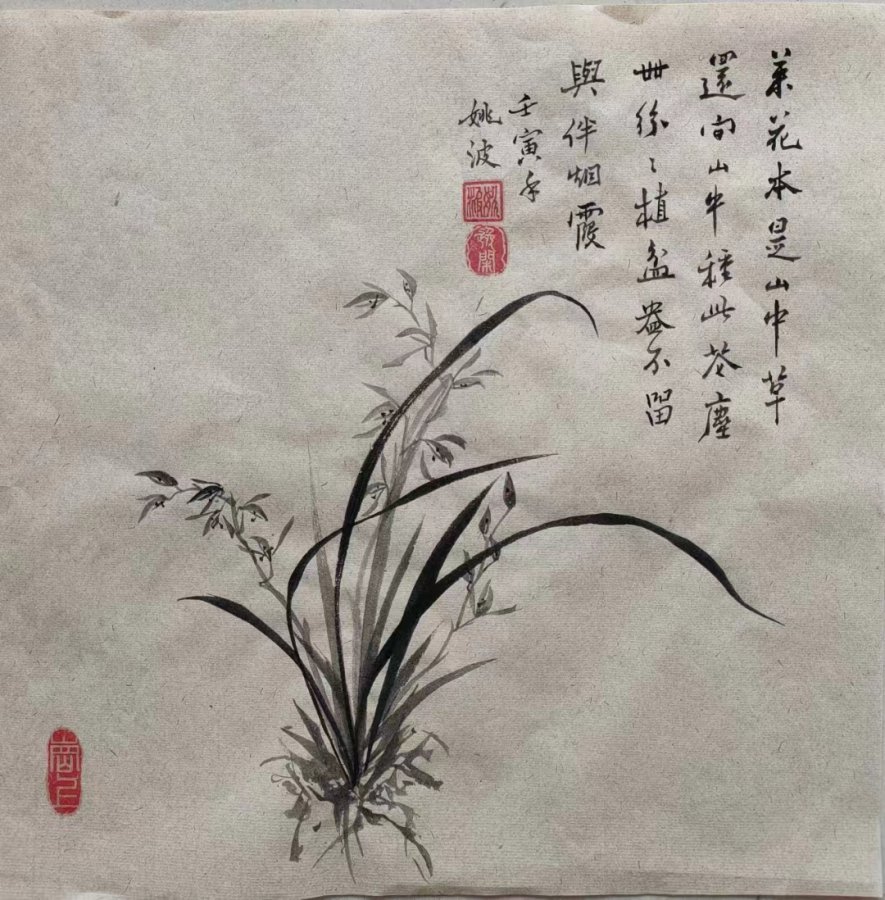 蘭花本是山中草
還向山中種此花塵
世紛〻植盆盎不留
與伴烟霞
壬寅年
姚波
姚波